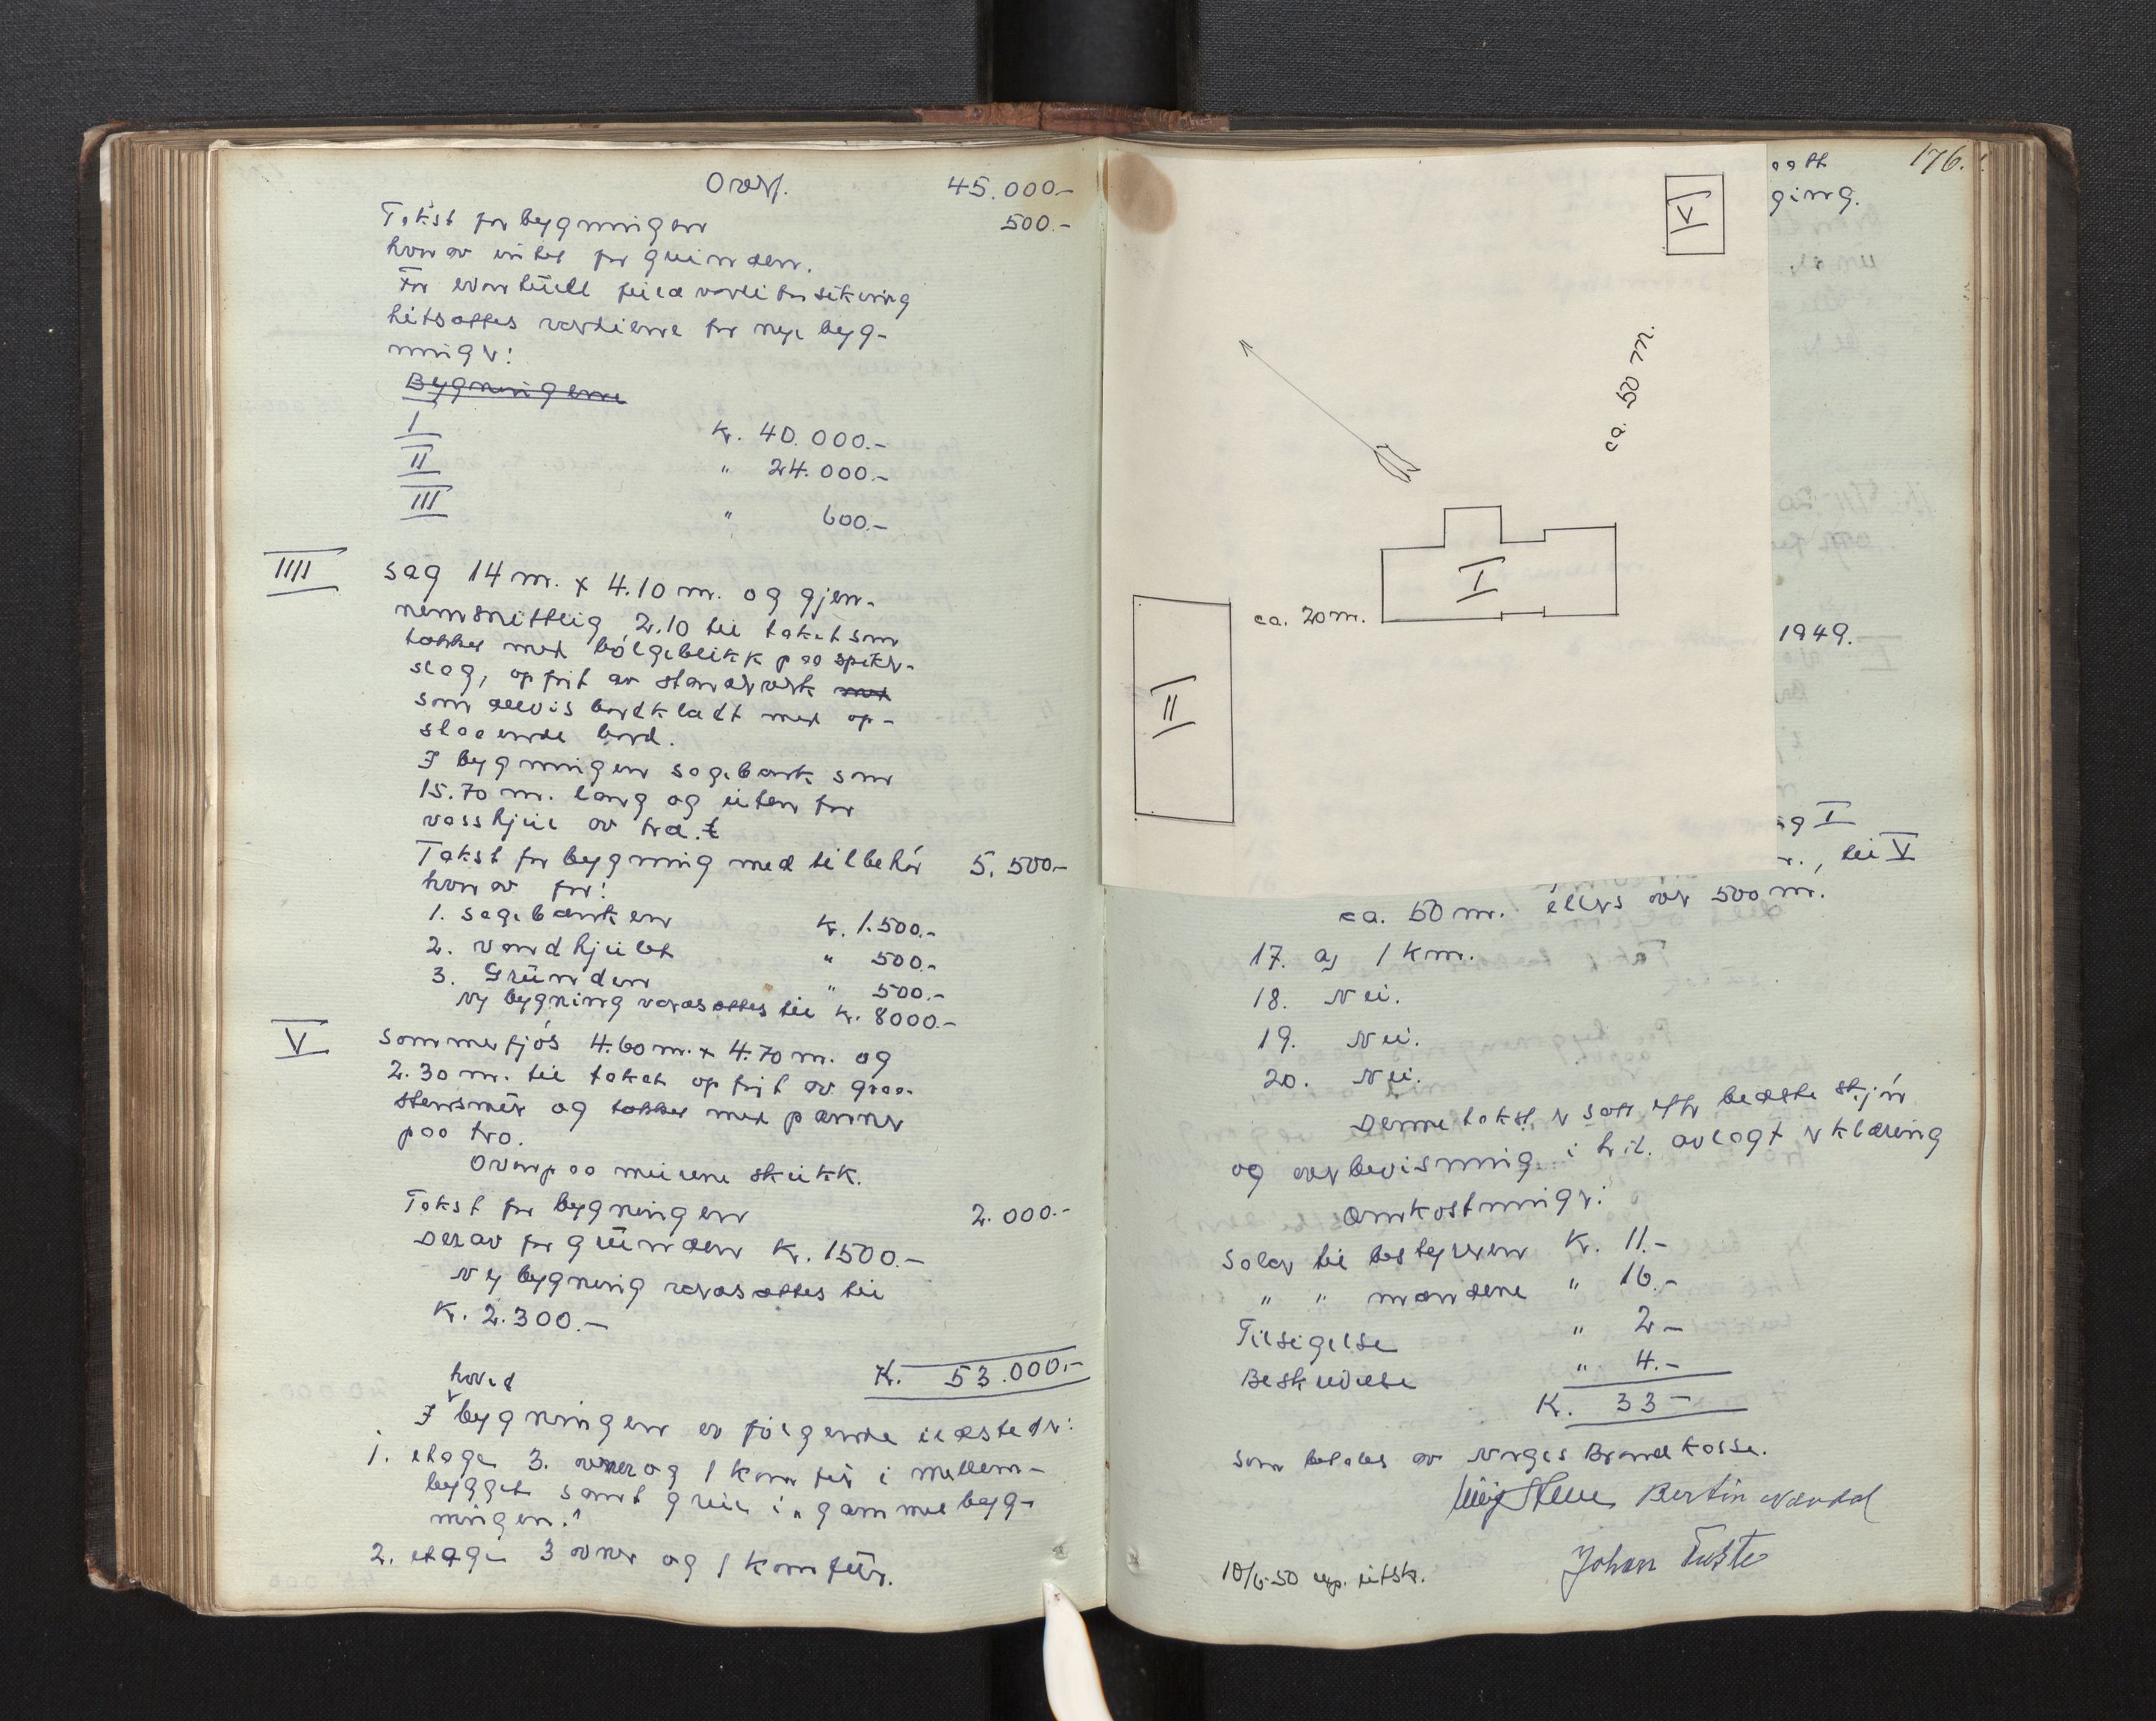 Overf. 45.000.-
Takst for bygningen 500.-
hvor av intet for grunden.
For eventuell fullverdiforsikring
hitsættes verdiene for nye byg-
ninger:
Bygningene
I Kr. 40.000.-
II " 24.000.-
III " 600.-
IIII Sag 14 m. x 4.10 m. og gjen-
nemsnittlig 2.10 til taket som
tækket med bølgeblikk paa spiker-
slag, opført av stenderverk med
som delvis bordklædt med op-
staaende bord.
I bygningen sagbenk som
15.70 m. lang og uten for
vasshjul av træ.
Takst for bygning med tilbehør 5.500.-
hvor av for:
1. Sagebenken Kr. 1.500.-
2. Vandhjulet " 500.-
3. Grunden " 500.-
Ny bygning verdsættes til Kr. 8000.-
V Sommerfjøs 4.60 m. x 4.70 m. og
2.30 m. til taket opført av graa-
stensmur og tækket med panner
paa tro.
Ovenpaa murene skukk.
Takst for bygningen 2.000.-
Derav for grunden Kr. 1500.-
Ny bygning verdsættes til
Kr. 2.300.-
K. 53.000.-
hoved
I bygningen er følgende ildsteder:
1. etage 3. ovner og 1 komfur i mellem-
bygget samt grue i "gammelbyg-
ningen."
2. etage 3 ovner og 1 komfür.
176.
ging.
V
ca. 50 m.
I
ca. 20 m.
II
1949.
I
til V
ca. 50 m. ellers over 500 m.
17. a) 1 km.
18. Nei.
19. Nei.
20. Nei.
Denne takst er satt efter bedste skjøn
og overbevisning i h.t. avlagt erklæring
Omkostninger:
Solær til bestyreren Kr. 11.-
" " mændene " 16.-
Tilsigelse " 2-
Beskrivelse " 4.-
K. 33-
som betales av Norges Brandkasse.
Bertin
Johan
10/6-50 utsk.